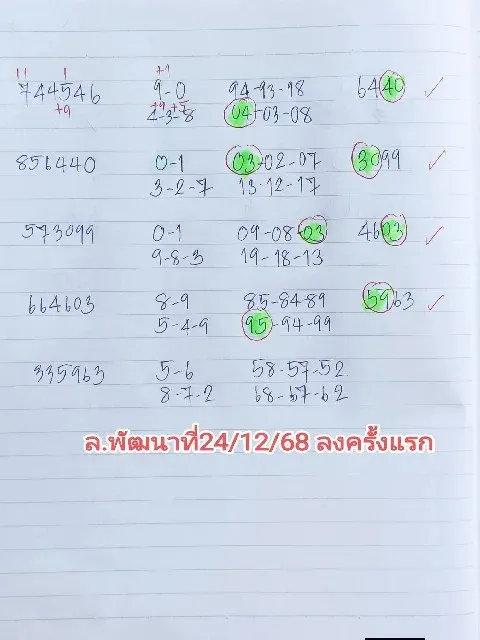 11 1 +1
744546 9-0 94-93-98 6440
+9 +9 +5
4-3-8 04-03-08
856440 0-1 03-02-07 3099
3-2-7 13-12-17
573099 0-1 09-08-03 4603
9-8-3 19-18-13
664603 8-9 85-84-89 5963
5-4-9 95-94-99
335963 5-6 58-57-52
8-7-2 68-67-62
ล.พัฒนาที่24/12/68 ลงครั้งแรก